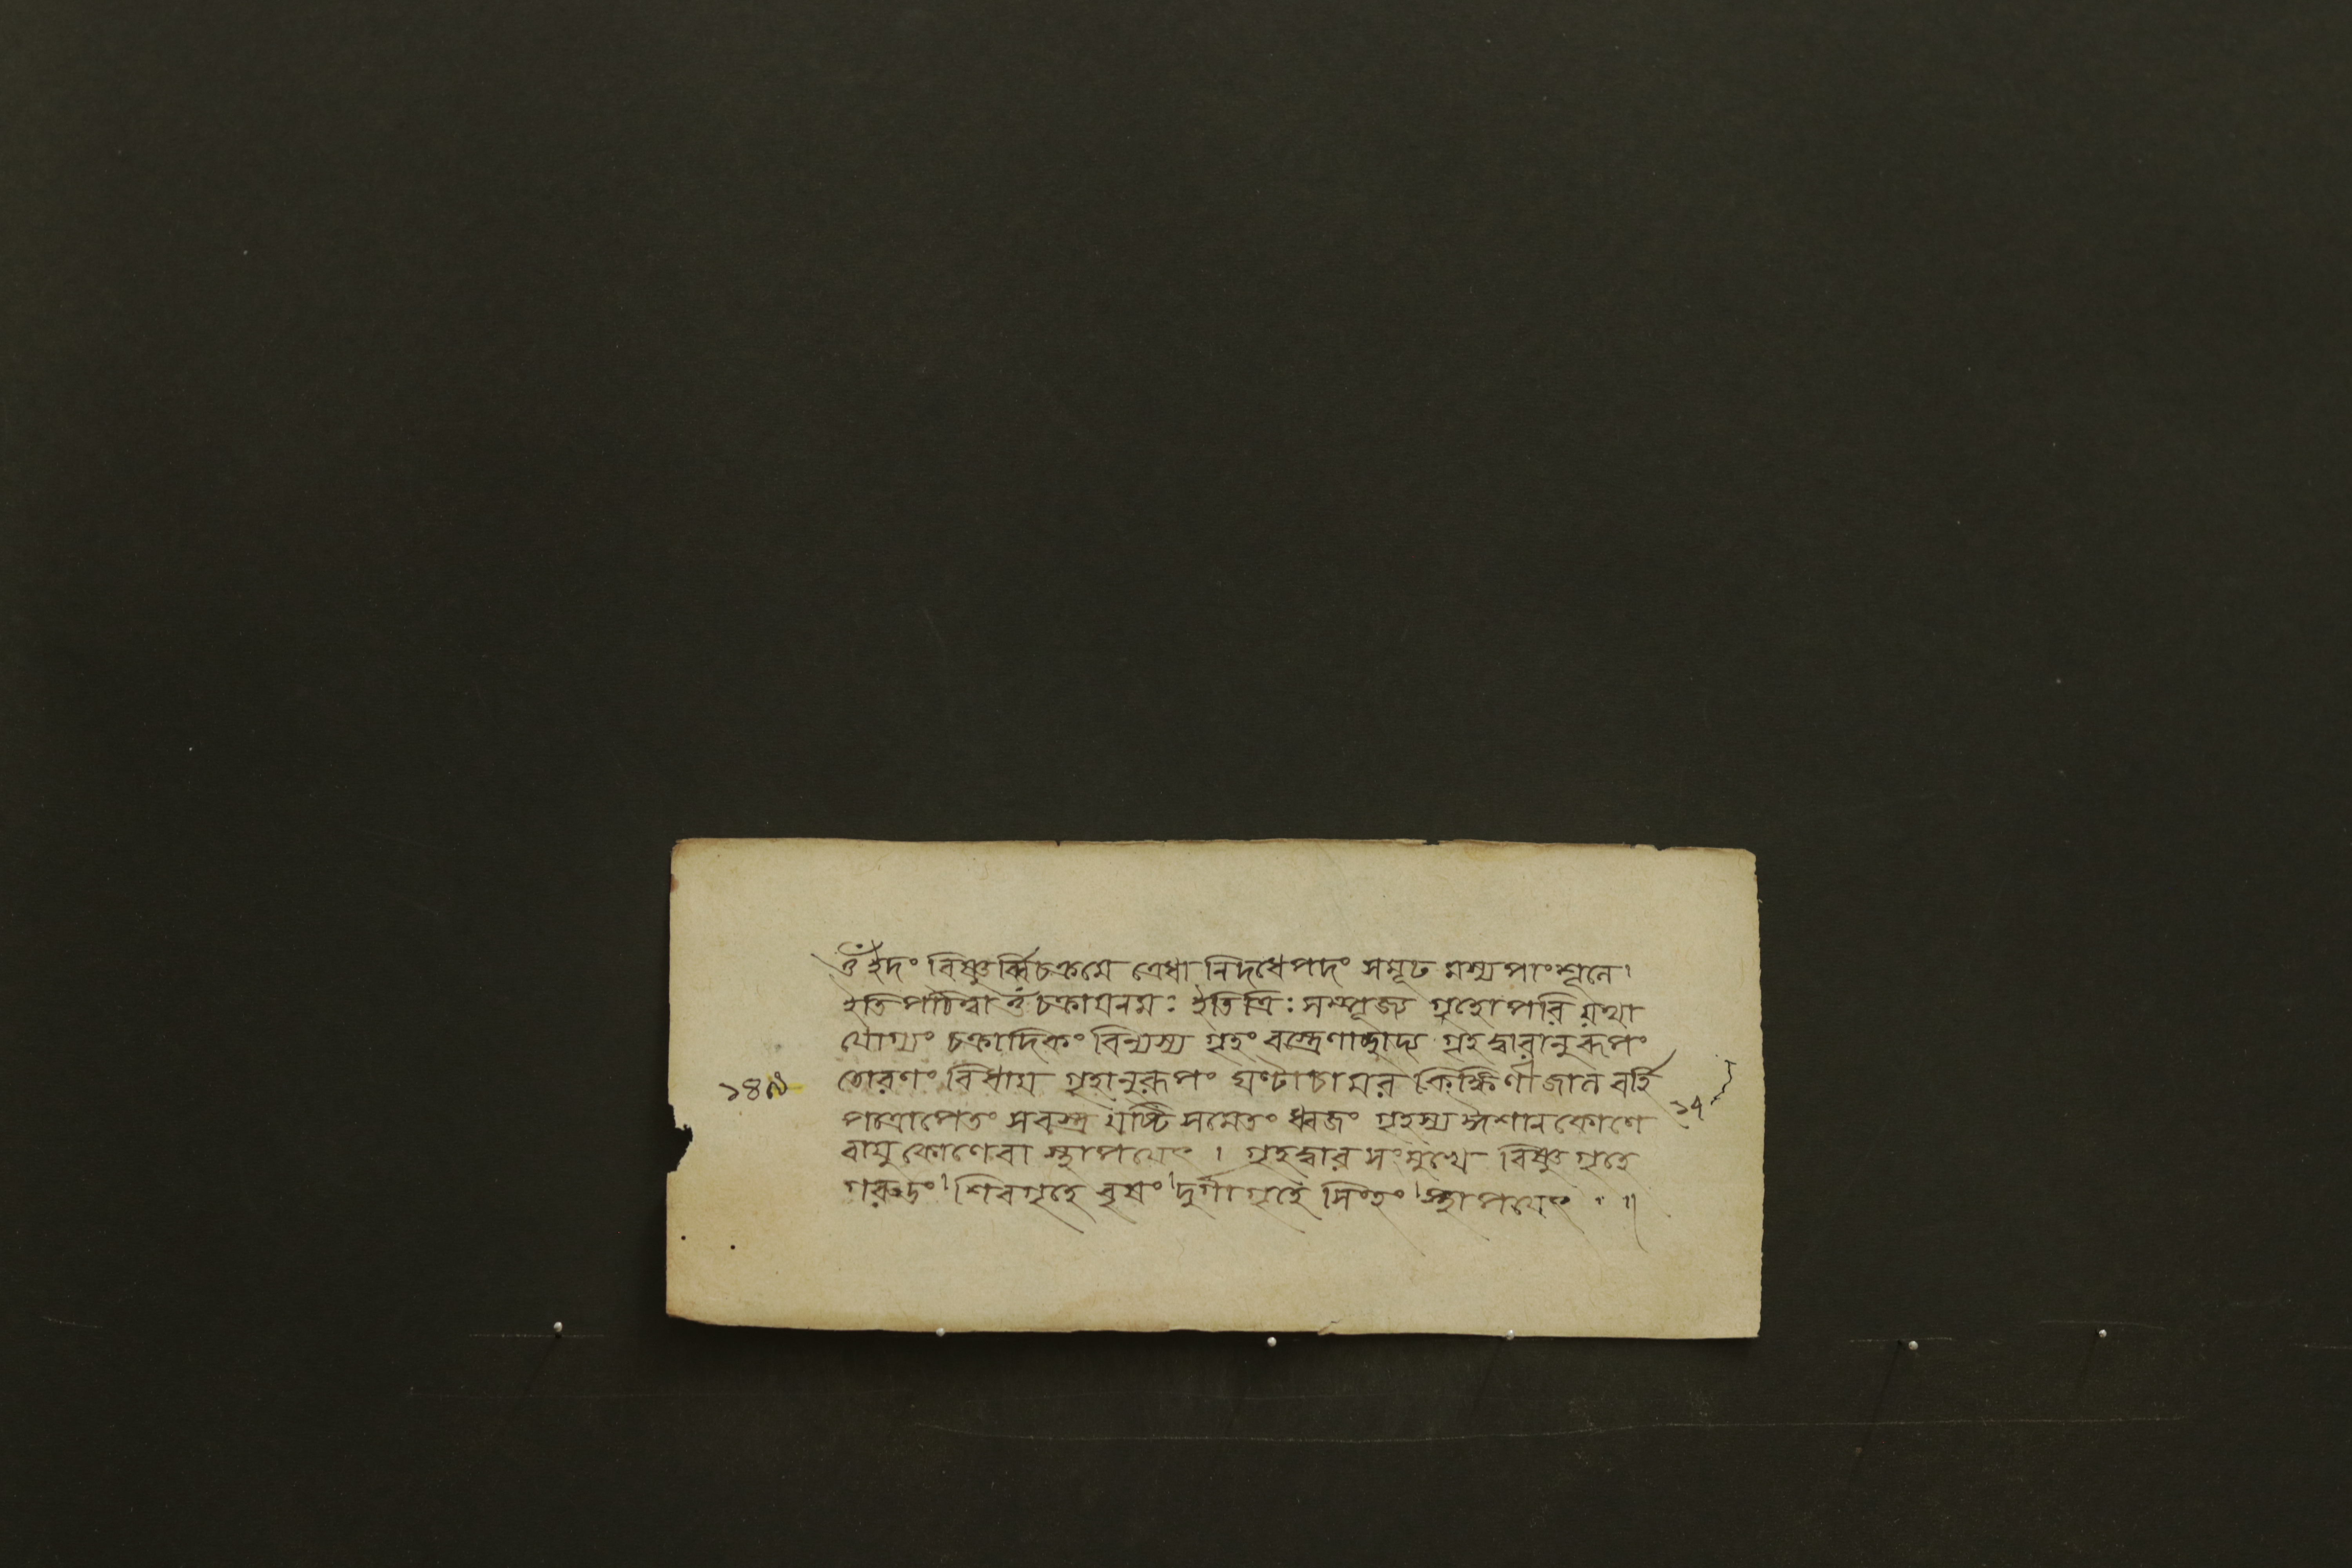 ওঁ ইদং বিষ্ণুর্ব্বিচক্রমে ত্রেধা নিদধে পদং সমূঢ মস্য পাংশুলে।
ইতি পঠিত্বা ওঁ চক্রায় নমঃ ইতি ত্রিঃ সম্পূজ্য গৃহোপরি যথা
যোগ্যং চক্রাদিকং বিন্যস্য গৃহং বস্ত্রেণাচ্ছাদ্য গৃহদ্বারানুরূপং
তোরণং বিধায় গৃহানুরূপং ঘণ্টাচামর কিঙ্কিণীজাল বর্হি
পত্রোপেতং সবস্ত্র যষ্টি সমেতং ধ্বজং গৃহস্য ঈশানকোণে
বায়ুকোণে বা স্থাপয়েৎ । গৃহদ্বার সংমুখে বিষ্ণু গৃহে
গরুড়ং। শিবগৃহে বৃষং। দুর্গা গৃহে সিংহং। স্থাপয়েৎ । ॥
১৭